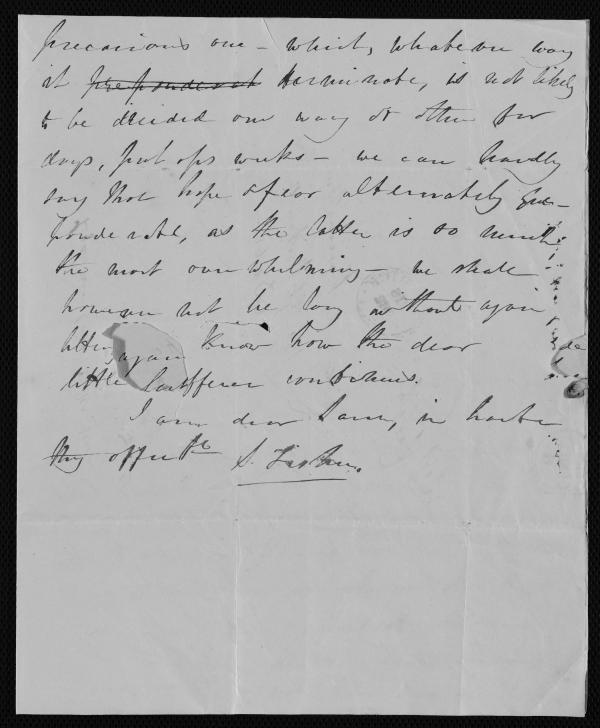 precarious one – which, whatever way
it preponderat terminate, is not likely
to be decided one way or other for
days, perhaps weeks – we can hardly
say that hope & fear alternately pre-
ponderate, as the latter is so much
the most overwhelming – we shall
however not be long without again
letting again know how the dear
little sufferer continues.
I am dear Sam, in haste
thy affect
S. Fisher.